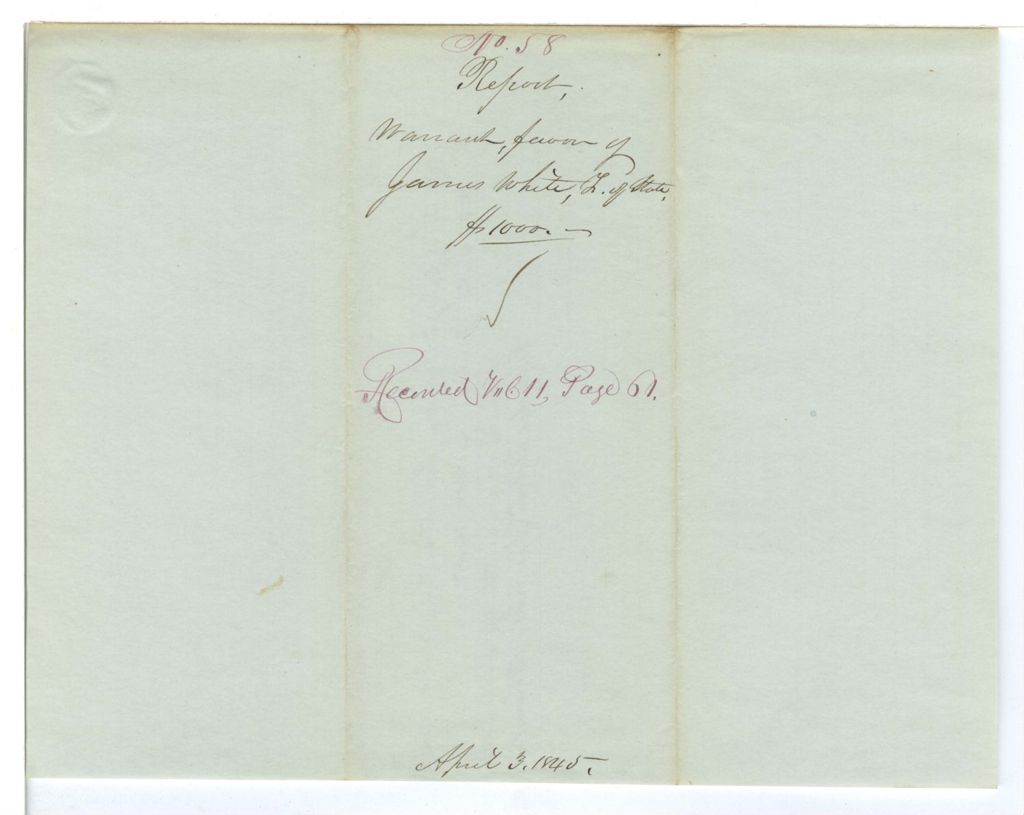 No. 58
Report,
Warrant, favor of
James White, T. of State,
$1000. —
Recorded Vol. 11, Page 61.
April 3. 1845.